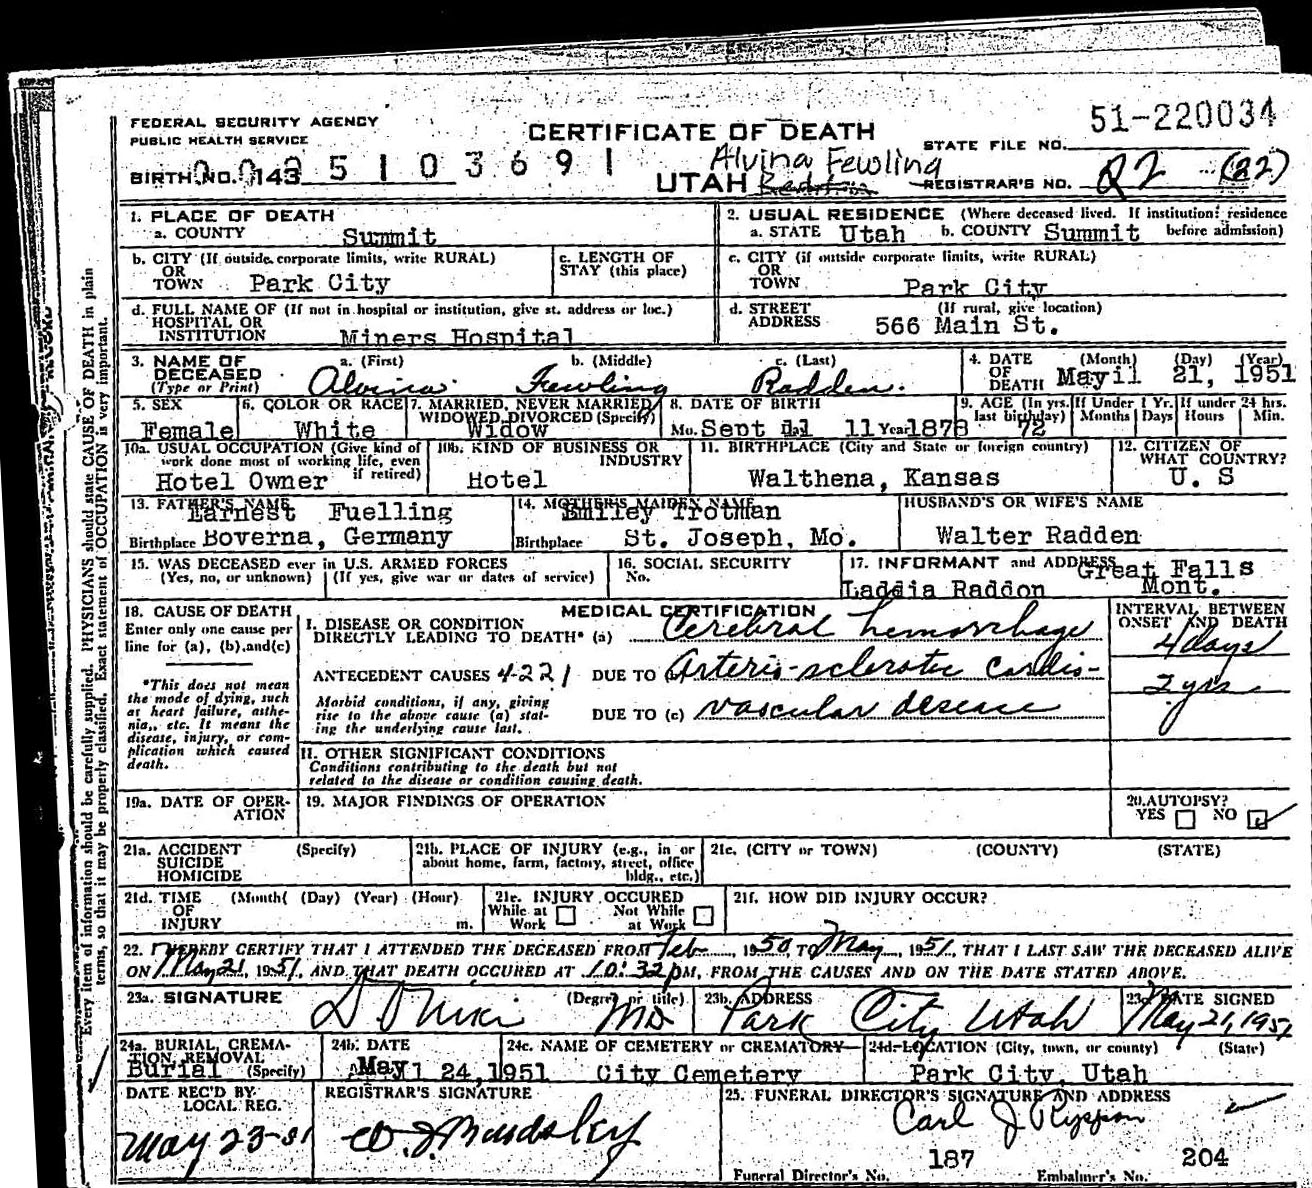 FEDERAL SECURITY AGENCY
PUBLIC HEALTH SERVICE
CERTIFICATE OF DEATH
51-220034
STATE FILE NO.
0035103691
BIRTH NO. 143
UTAH
Alvina Fewling
REGISTRAR'S NO. 22 (22)
1. PLACE OF DEATH
a. COUNTY Summit
2. USUAL RESIDENCE (Where deceased lived. If institution: residence before admission)
a. STATE Utah b. COUNTY Summit
b. CITY (If outside corporate limits, write RURAL)
OR
TOWN Park City
c. LENGTH OF
STAY (this place)
c. CITY (if outside corporate limits, write RURAL)
OR
TOWN Park City
d. FULL NAME OF (If not in hospital or institution, give st. address or loc.)
HOSPITAL OR
INSTITUTION Miners Hospital
d. STREET (If rural, give location)
ADDRESS 566 Main St.
3. NAME OF DECEASED
(Type or Print)
a. (First) b. (Middle) c. (Last)
Alvina Fewling Radden.
4. DATE OF DEATH (Month) (Day) (Year)
May 21, 1951
5. SEX
Female
6. COLOR OR RACE
White
7. MARRIED, NEVER MARRIED,
WIDOWED, DIVORCED (Specify)
Widow
8. DATE OF BIRTH
Mo. Sept 11 Year 1878
9. AGE (In yrs. last birthday)
72
If Under 1 Yr. Months Days
If under 24 hrs. Hours Min.
10a. USUAL OCCUPATION (Give kind of
work done most of working life, even
if retired)
Hotel Owner
10b. KIND OF BUSINESS OR
INDUSTRY
Hotel
11. BIRTHPLACE (City and State or foreign country)
Walthena, Kansas
12. CITIZEN OF
WHAT COUNTRY?
U. S
13. FATHER'S NAME
Earnest Fuelling
Birthplace Boverna, Germany
14. MOTHER'S MAIDEN NAME
Emiley Trotman
Birthplace St. Joseph, Mo.
HUSBAND'S OR WIFE'S NAME
Walter Radden
15. WAS DECEASED ever in U.S. ARMED FORCES
(Yes, no, or unknown) (If yes, give war or dates of service)
16. SOCIAL SECURITY
No.
17. INFORMANT and ADDRESS
Great Falls
Laddia Raddon Mont.
18. CAUSE OF DEATH
Enter only one cause per
line for (a), (b), and (c)
*This does not mean
the mode of dying, such
as heart failure, asthe-
nia, etc. It means the
disease, injury, or com-
plication which caused
death.
MEDICAL CERTIFICATION
I. DISEASE OR CONDITION
DIRECTLY LEADING TO DEATH* (a) Cerebral hemorrhage
ANTECEDENT CAUSES 4-221 DUE TO Arterio-sclerotic cardio-
Morbid conditions, if any, giving
rise to the above cause (a) stat-
ing the underlying cause last.
DUE TO (c) vascular desease
INTERVAL BETWEEN
ONSET AND DEATH
4 days
2 yrs
II. OTHER SIGNIFICANT CONDITIONS
Conditions contributing to the death but not
related to the disease or condition causing death.
19a. DATE OF OPER-
ATION
19. MAJOR FINDINGS OF OPERATION
20. AUTOPSY?
YES NO
21a. ACCIDENT (Specify)
SUICIDE
HOMICIDE
21b. PLACE OF INJURY (e.g., in or
about home, farm, factory, street, office
bldg., etc.)
21c. (CITY or TOWN) (COUNTY) (STATE)
21d. TIME (Month) (Day) (Year) (Hour)
OF
INJURY m.
21e. INJURY OCCURED
While at Work Not While at Work
21f. HOW DID INJURY OCCUR?
22. I HEREBY CERTIFY THAT I ATTENDED THE DECEASED FROM Feb, 1950, TO May, 1951, THAT I LAST SAW THE DECEASED ALIVE
ON May 21, 1951, AND THAT DEATH OCCURED AT 10:32 PM, FROM THE CAUSES AND ON THE DATE STATED ABOVE.
23a. SIGNATURE (Degree or title)
MD
23b. ADDRESS
Park City Utah
23c. DATE SIGNED
May 21, 1951
24a. BURIAL, CREMA-
TION, REMOVAL
Burial (Specify)
24b. DATE
May 24, 1951
24c. NAME OF CEMETERY or CREMATORY
City Cemetery
24d. LOCATION (City, town, or county) (State)
Park City, Utah
DATE REC'D BY
LOCAL REG.
May 23-51
REGISTRAR'S SIGNATURE
25. FUNERAL DIRECTOR'S SIGNATURE AND ADDRESS
Carl J
187 204
Funeral Director's No. Embalmer's No.
Every item of information should be carefully supplied. PHYSICIANS should state CAUSE OF DEATH in plain
terms, so that it may be properly classified. Exact statement of OCCUPATION is very important.